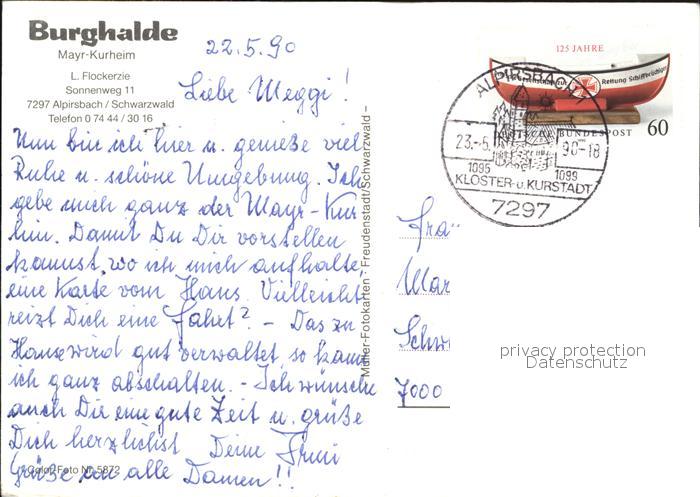 Burghalde
Mayr-Kurheim
L. Flockerzie
Sonnenweg 11
7297 Alpirsbach / Schwarzwald
Telefon 0 74 44 / 30 16
22.5.90
Liebe Meggi!
Nun bin ich hier u. genieße viel
Ruhe u. schöne Umgebung. Ich
gebe mich ganz der Mayr-Kur
hin. Damit Du Dir vorstellen
kannst, wo ich mich aufhalte,
eine Karte vom Haus. Vielleicht
reizt Dich eine Fahrt? - Das zu
Hause wird gut verwaltet, so kann
ich ganz abschalten. - Ich wünsche
auch Dir eine gute Zeit u. grüße
Dich herzlichst Deine
Grüße an alle Damen!!
Color-Foto Nr. 5872
Müller-Fotokarten - Freudenstadt/Schwarzwald -
125 JAHRE
Rettung Schiffbrüchiger
DEUTSCHE BUNDESPOST
60
ALPIRSBACH 1
23.-5. 90-18
1095 1099
KLOSTER-u.KURSTADT
7297
Frau
Mar
Schw
7000
privacy protection
Datenschutz